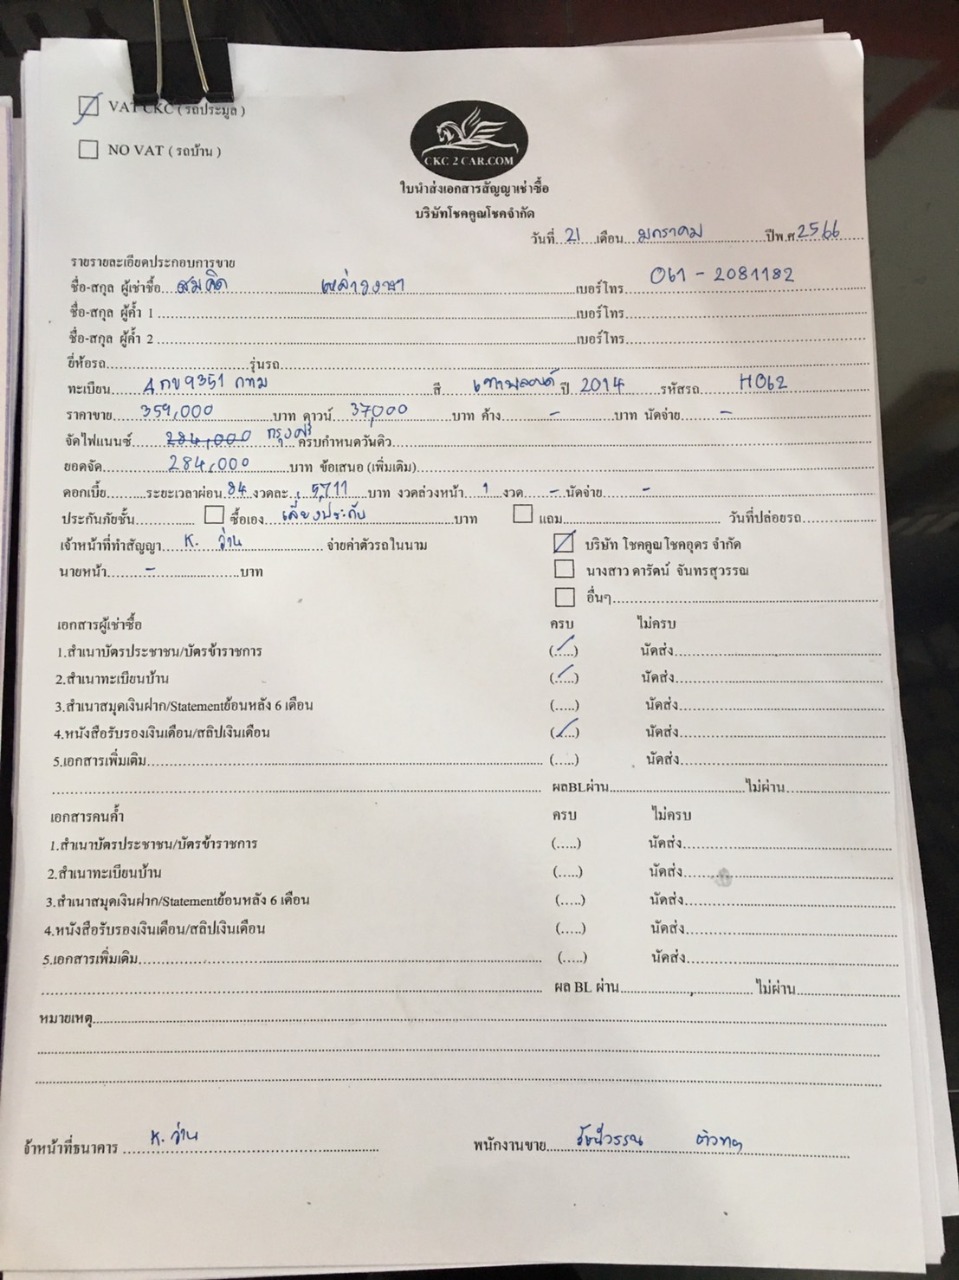 VAT CKC ( รถประมูล )
NO VAT ( รถบ้าน )
CKC 2 CAR.COM
ใบนำส่งเอกสารสัญญาเช่าซื้อ
บริษัทโชคคูณโชคจำกัด
วันที่ 21 เดือน มกราคม ปีพ.ศ 2566
รายรายละเอียดประกอบการขาย
ชื่อ-สกุล ผู้เช่าซื้อ สมคิด เบอร์โทร 061 - 2081182
ชื่อ-สกุล ผู้ค้ำ 1 เบอร์โทร
ชื่อ-สกุล ผู้ค้ำ 2 เบอร์โทร
ยี่ห้อรถ รุ่นรถ
ทะเบียน 4 กข 9351 กทม สี ปี 2014 รหัสรถ H062
ราคาขาย 359,000 บาท ดาวน์ 37,000 บาท ค้าง - บาท นัดจ่าย -
จัดไฟแนนซ์ 284,000 กรุงศรี ครบกำหนดวันดิว
ยอดจัด 284,000 บาท ข้อเสนอ (เพิ่มเติม)
ดอกเบี้ย ระยะเวลาผ่อน 84 งวดละ 5,711 บาท งวดล่วงหน้า 1 งวด - นัดจ่าย -
ประกันภัยชั้น ซื้อเอง บาท แถม วันที่ปล่อยรถ
เจ้าหน้าที่ทำสัญญา K. ว่าน จ่ายค่าตัวรถในนาม บริษัท โชคคูณโชคอุดร จำกัด
นายหน้า - บาท นางสาว ดารัตน์ จันทรสุวรรณ
อื่นๆ
เอกสารผู้เช่าซื้อ ครบ ไม่ครบ
1.สำเนาบัตรประชาชน/บัตรข้าราชการ (.....) นัดส่ง
2.สำเนาทะเบียนบ้าน (.....) นัดส่ง
3.สำเนาสมุดเงินฝาก/Statementย้อนหลัง 6 เดือน (.....) นัดส่ง
4.หนังสือรับรองเงินเดือน/สลิปเงินเดือน (.....) นัดส่ง
5.เอกสารเพิ่มเติม (.....) นัดส่ง
ผลBLผ่าน ไม่ผ่าน
เอกสารคนค้ำ ครบ ไม่ครบ
1.สำเนาบัตรประชาชน/บัตรข้าราชการ (.....) นัดส่ง
2.สำเนาทะเบียนบ้าน (.....) นัดส่ง
3.สำเนาสมุดเงินฝาก/Statementย้อนหลัง 6 เดือน (.....) นัดส่ง
4.หนังสือรับรองเงินเดือน/สลิปเงินเดือน (.....) นัดส่ง
5.เอกสารเพิ่มเติม (.....) นัดส่ง
ผล BL ผ่าน ไม่ผ่าน
หมายเหตุ
จ้าหน้าที่ธนาคาร K. ว่าน พนักงานขาย